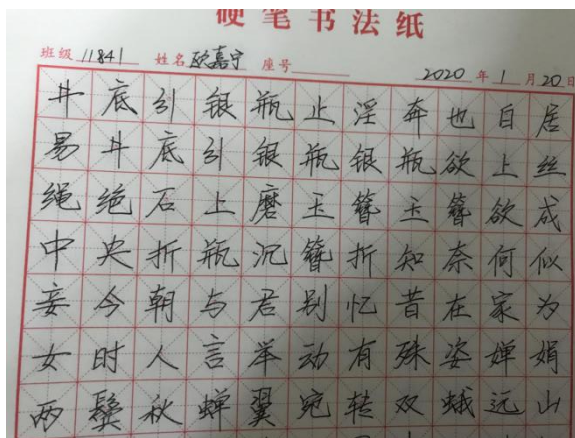 硬笔书法纸
班级 11841 姓名 欧嘉宁 座号 2020 年 1 月 20 日
井底引银瓶止淫奔也白居
易井底引银瓶银瓶欲上丝
绳绝石上磨玉簪玉簪欲成
中央折瓶沉簪折知奈何似
妾今朝与君别忆昔在家为
女时人言举动有殊姿婵娟
两鬓秋蝉翼宛转双蛾远山